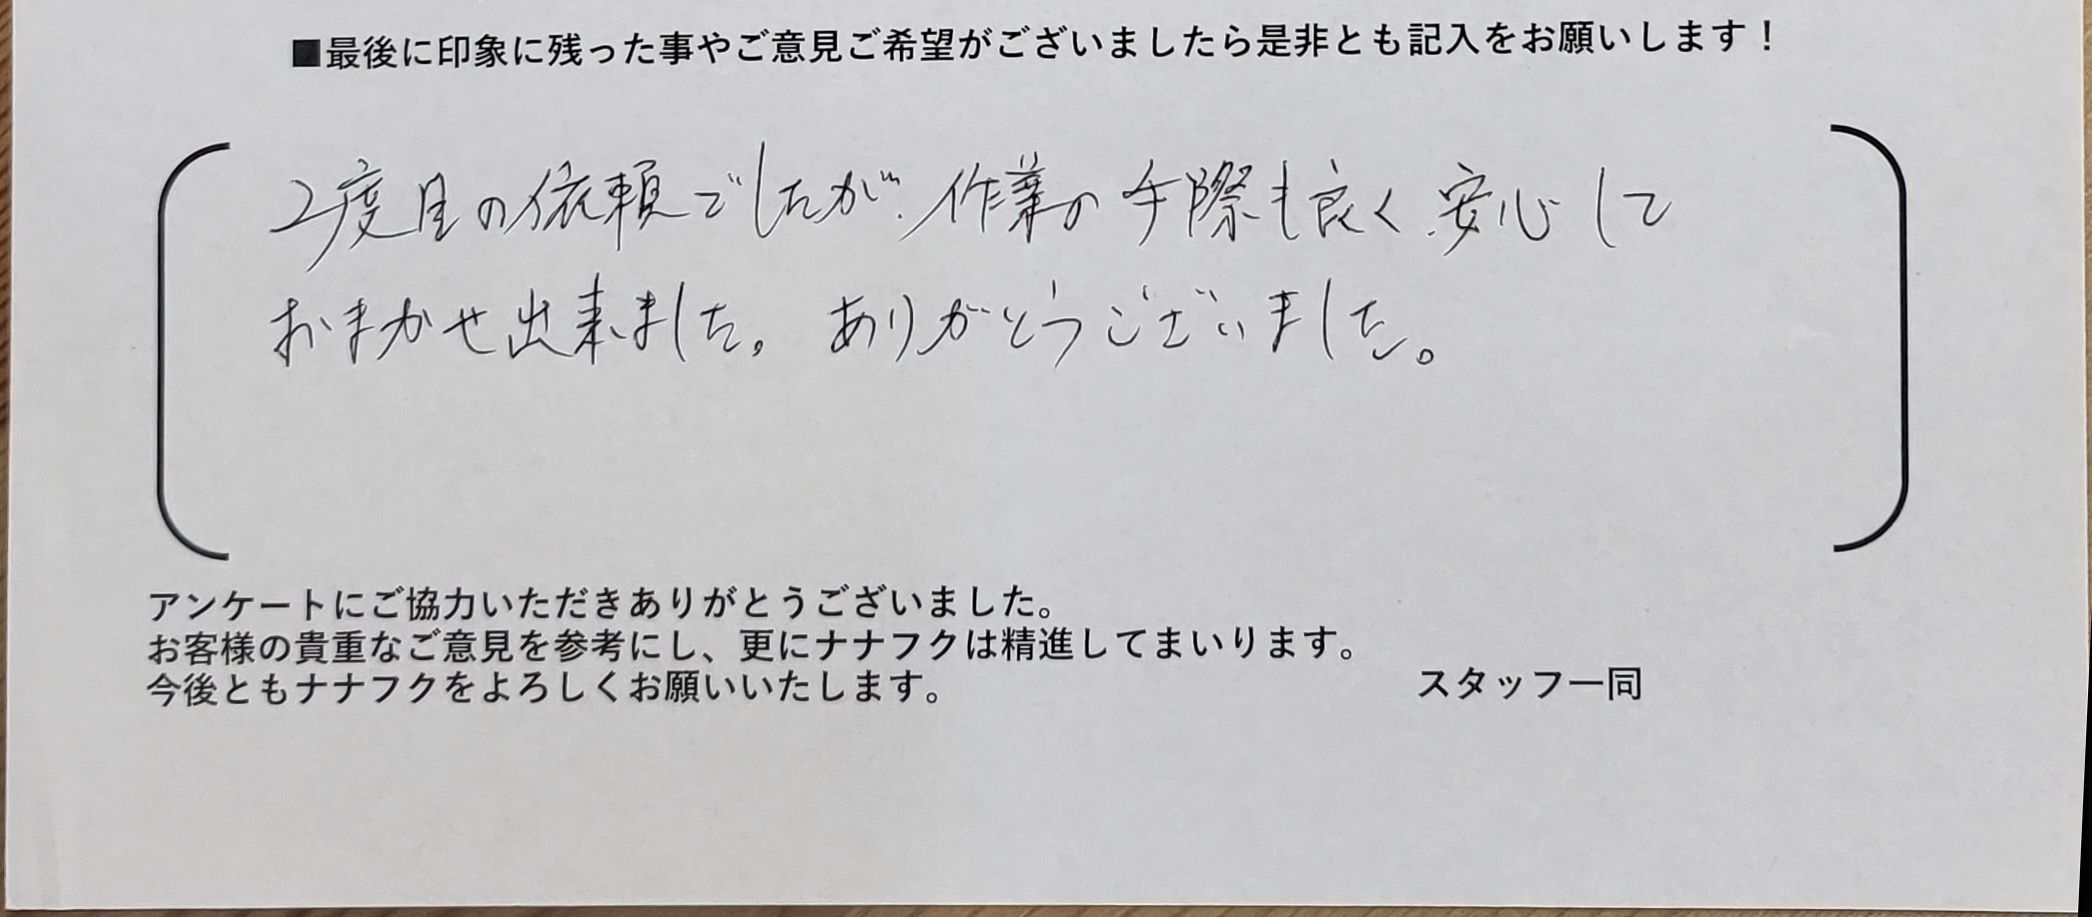 ■最後に印象に残った事やご意見ご希望がございましたら是非とも記入をお願いします！
2度目の依頼でしたが、作業の手際も良く、安心して
おまかせ出来ました。ありがとうございました。
アンケートにご協力いただきありがとうございました。
お客様の貴重なご意見を参考にし、更にナナフクは精進してまいります。
今後ともナナフクをよろしくお願いいたします。
スタッフ一同